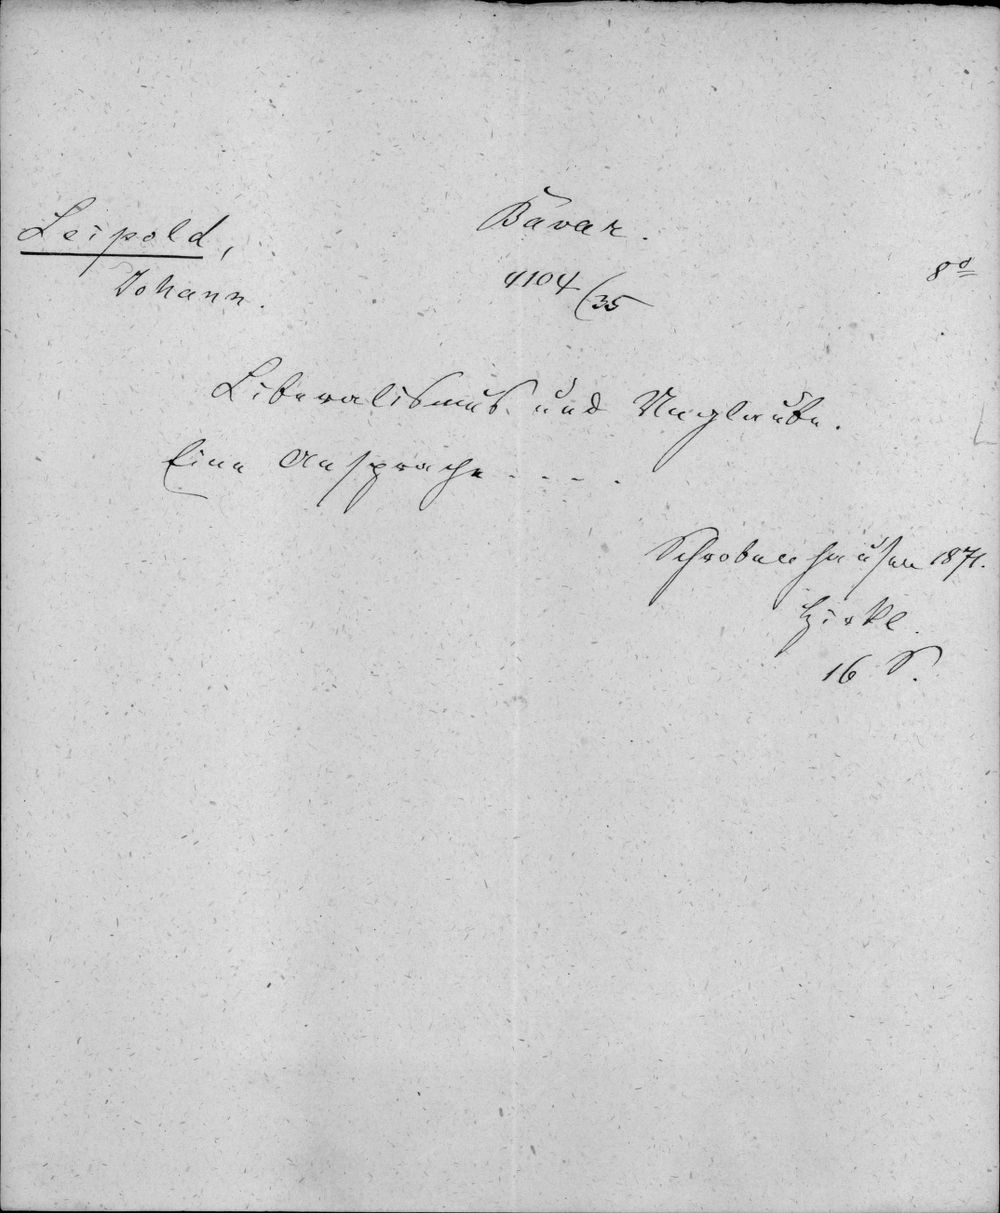 Leipold,
Johann.
Bavar.
4104/35
8º
Liberalismus und Unglaube.
Eine Ansprache . . . .
Schrobenhausen 1871.
16 S.